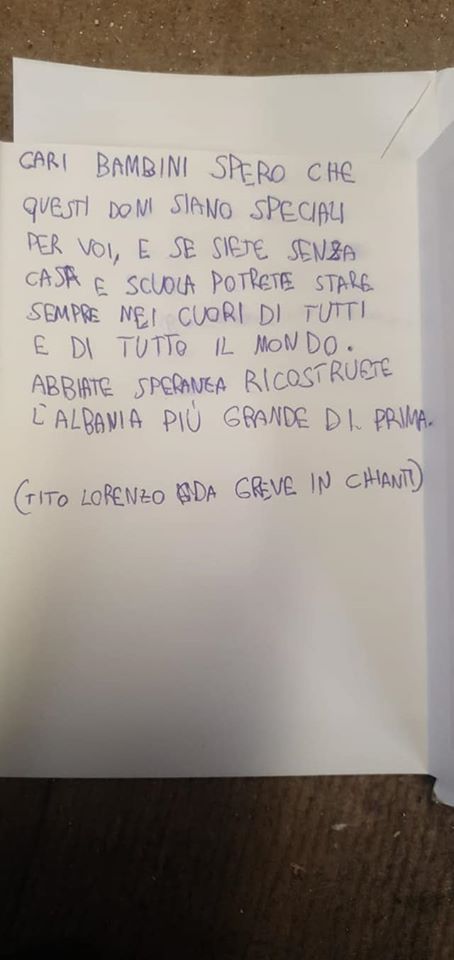 CARI BAMBINI SPERO CHE
QUESTI DONI SIANO SPECIALI
PER VOI, E SE SIETE SENZA
CASA E SCUOLA POTRETE STARE
SEMPRE NEI CUORI DI TUTTI
E DI TUTTO IL MONDO.
ABBIATE SPERANZA RICOSTRUETE
L'ALBANIA PIÙ GRANDE DI PRIMA.
(TITO LORENZO DA GREVE IN CHIANTI)